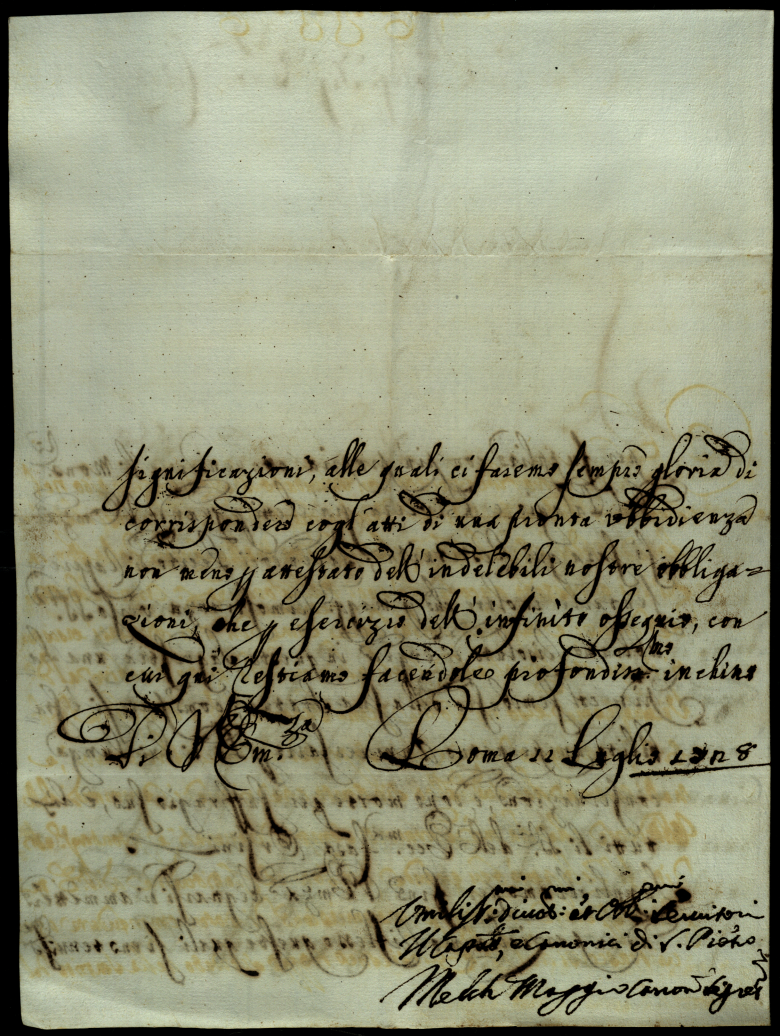 significazioni, alle quali ci faremo sempre gloria di
corrispondere cogl'atti di una pronta ubbidienza
non meno p attestato dell'indelebili nostre obbliga=
zioni, che p esercizio dell'infinito ossequio, con
cui qui restiamo facendole profondissmo inchino
Di V. Emza Roma 12 Luglio 1728
Umilissmi divotmi et Obbmi Servitori
Il Caplo, e Canonici di S. Pietro
Melch Maggio Canon Segret